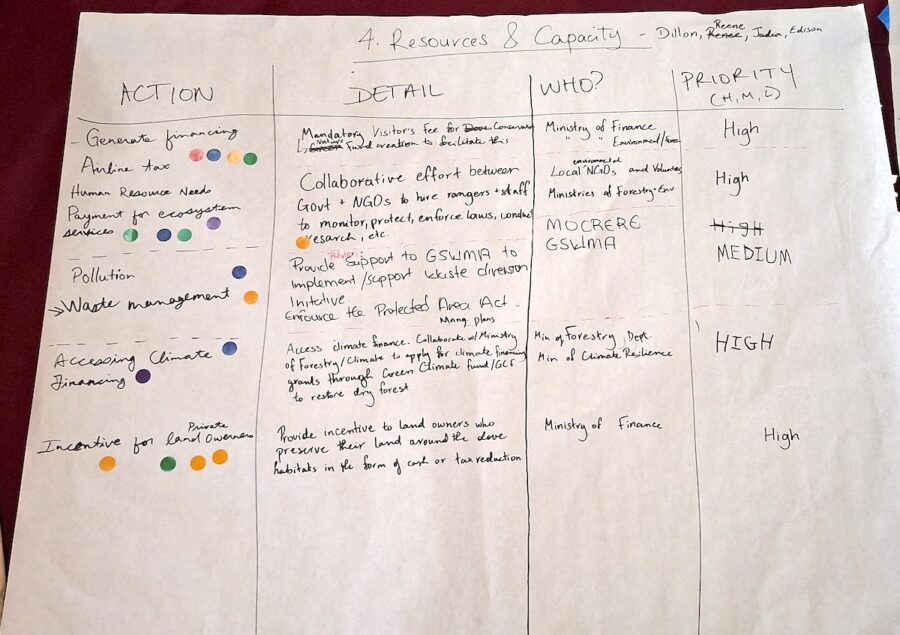 4. Resources & Capacity - Dillon, Reene, Jadia, Edison
ACTION
DETAIL
WHO?
PRIORITY
(H, M, L)
- Generate financing
Airline tax
Mandatory Visitors Fee for Conservation
Fund creation to facilitate this
Ministry of Finance
" " Environment/
High
Human Resource Needs
Payment for ecosystem
services
Collaborative effort between
Govt + NGOs to hire rangers + staff
to monitor, protect, enforce laws, conduct
research, etc.
environmental
Local NGOs and Volunteers
Ministries of Forestry + Env
High
Pollution
→ Waste management
Provide support to GSWMA to
implement/support waste diversion
Initiative.
Enforce the Protected Area Act.
Mang. plans
MOCRERE
GSWMA
High
MEDIUM
Accessing Climate
Financing
Access climate finance. Collaborate w/ Ministry
of Forestry/Climate to apply for climate financing
grants through Green Climate fund/GCF
to restore dry forest
Min of Forestry Dept.
Min of Climate Resilience
HIGH
Private
Incentive for land Oweners
Provide incentive to land owners who
preserve their land around the dove
habitats in the form of cash or tax reduction
Ministry of Finance
High